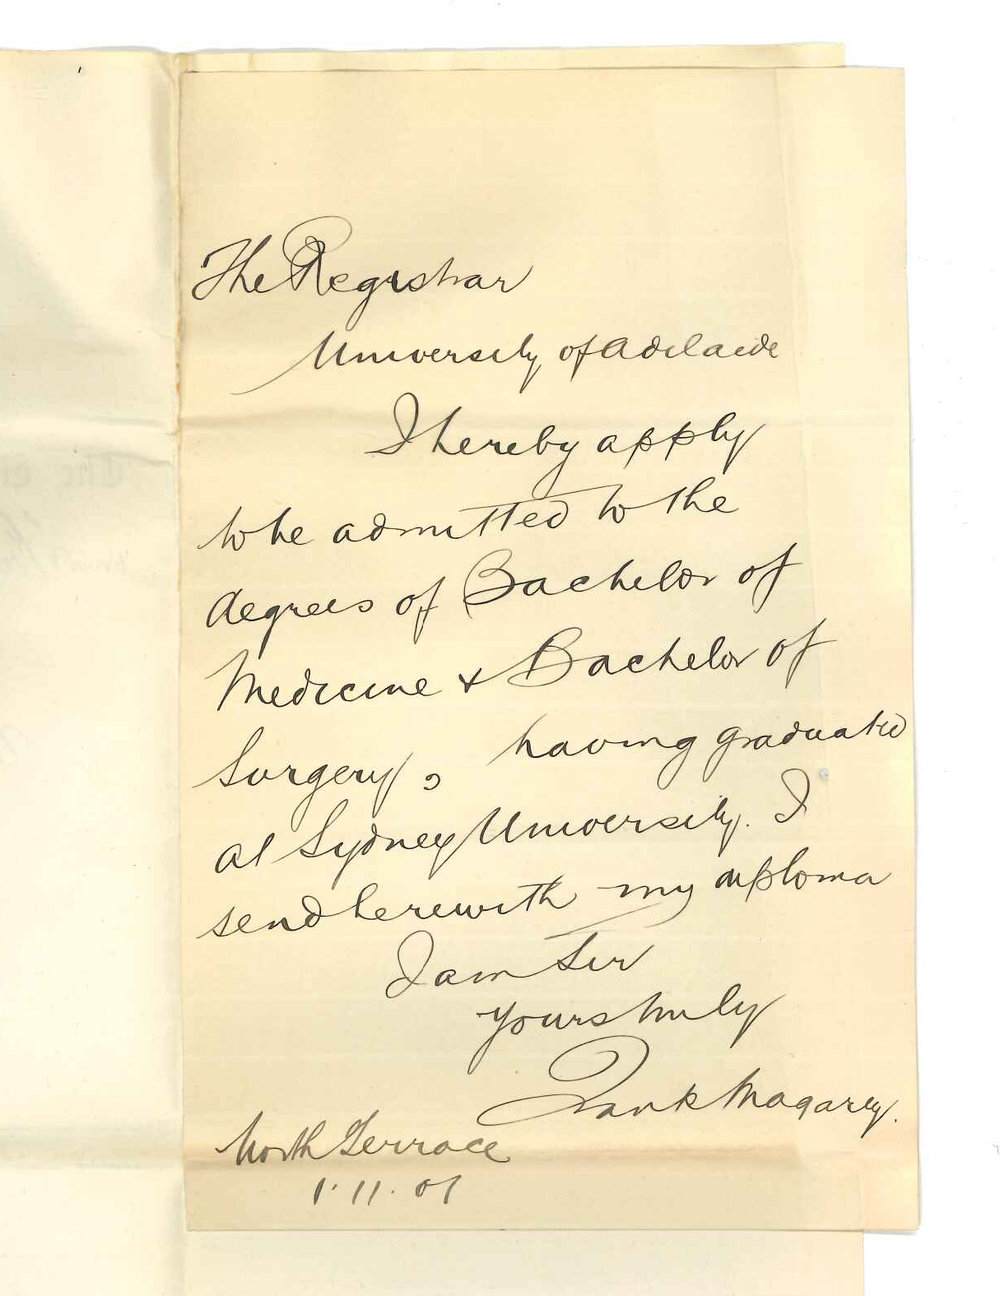 The Registrar
University of Adelaide
I hereby apply
to be admitted to the
degrees of Bachelor of
Medicine & Bachelor of
Surgery, having graduated
at Sydney University. I
send herewith my diploma
I am Sir
yours truly
Frank Magarey.
North Terrace
1.11.01